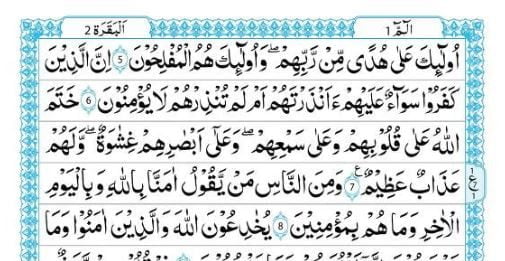 الٓمّٓ 1 اَلْبَقَرَة 2
اُولٰٓئِكَ عَلٰى هُدًى مِّنْ رَّبِّهِمْ ۖ وَاُولٰٓئِكَ هُمُ الْمُفْلِحُوْنَ 5 اِنَّ الَّذِيْنَ
كَفَرُوْا سَوَآءٌ عَلَيْهِمْ ءَاَنْذَرْتَهُمْ اَمْ لَمْ تُنْذِرْهُمْ لَا يُؤْمِنُوْنَ 6 خَتَمَ
اللّٰهُ عَلٰى قُلُوْبِهِمْ وَعَلٰى سَمْعِهِمْ ۖ وَعَلٰٓى اَبْصَارِهِمْ غِشَاوَةٌ ۖ وَّلَهُمْ
عَذَابٌ عَظِيْمٌ 7 وَمِنَ النَّاسِ مَنْ يَّقُوْلُ اٰمَنَّا بِاللّٰهِ وَبِالْيَوْمِ
الْاٰخِرِ وَمَا هُمْ بِمُؤْمِنِيْنَ 8 يُخٰدِعُوْنَ اللّٰهَ وَالَّذِيْنَ اٰمَنُوْا وَمَا